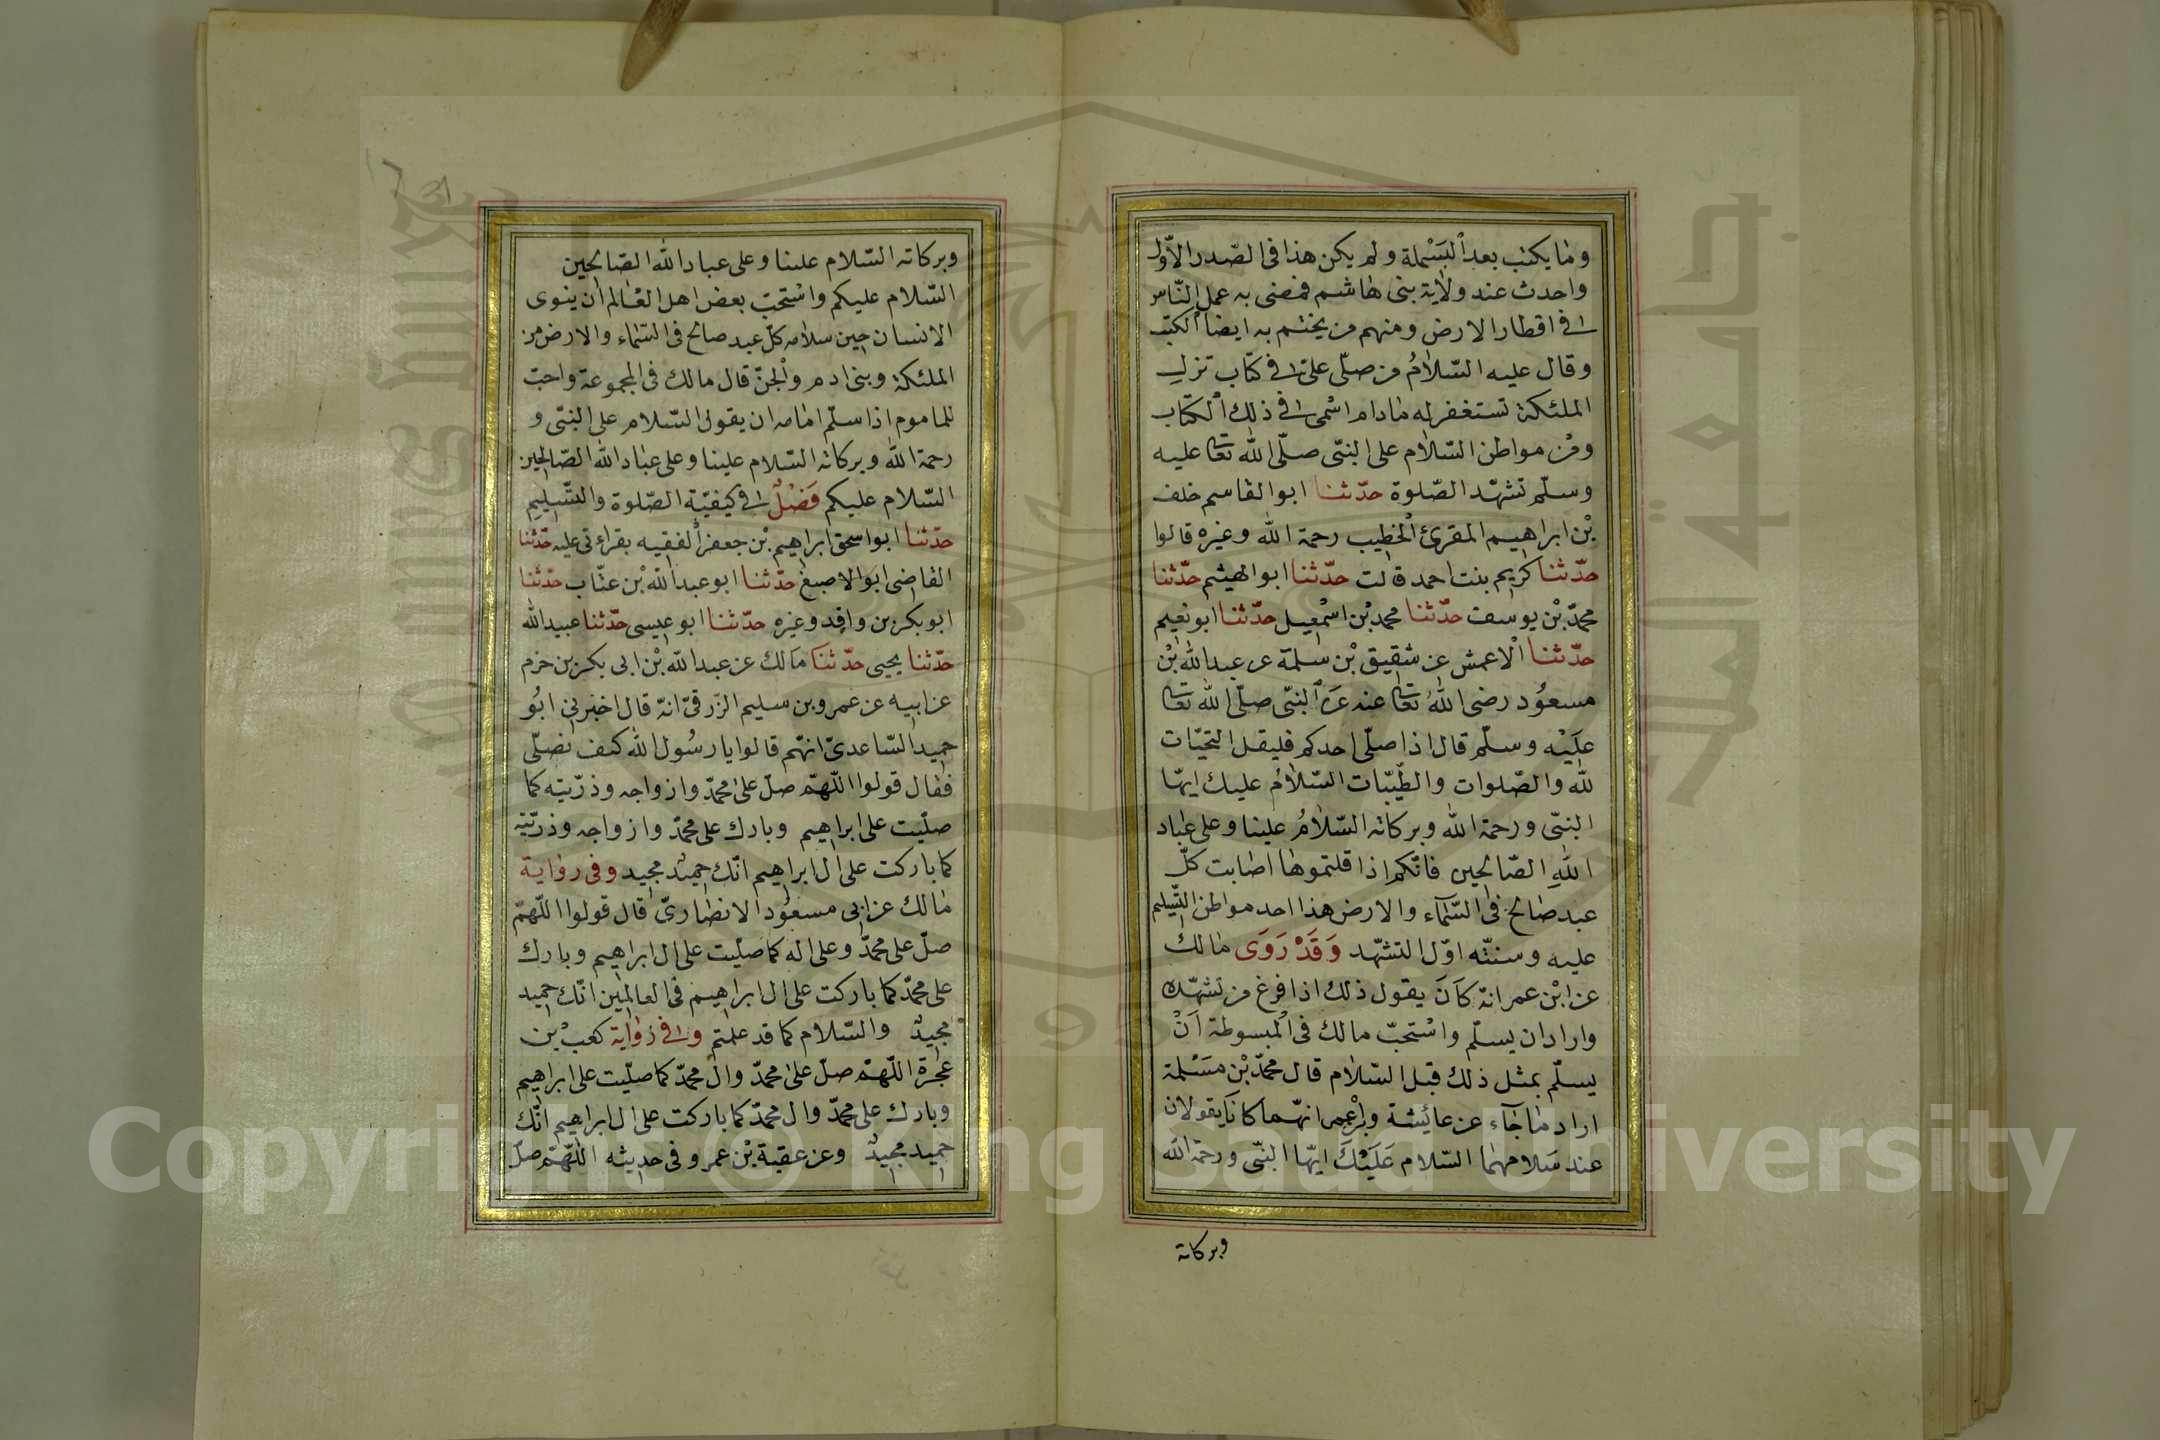 وما يكتب بعد البَسْملة ولم يكن هذا فى الصّدر الاّول
واحدث عند ولاية بنى هاشم فمضى به عمل النّاس
فى اقطار الارض ومنهم من يختم به ايضا الكتب
وقال عليه السّلامُ من صلّى علىّ فى كتاب تزل
الملئكة تستغفر له مادام اسْمى فى ذلك الكتاب
ومن مواطن السّلام على النبّى صلّى اللّه تعا عليه
وسلّم تشهّد الصّلوة حدّثنا ابوالقاسم خلف
بْن ابراهيم المقرئ الخطيب رحمة اللّه وغيره قالوا
حدّثنا كريم بنت احمد قالت حدّثنا ابوالهيثم حدّثنا
محمّد بْن يوسف حدّثنا محمد بْن اسْمعيل حدّثنا ابونعيم
حدّثنا الْاعمش عن شقيق بْن سلمة عن عبد اللّه بْن
مسعوُد رضى اللّهُ تعا عنه عَن النبّى صلّى اللّه تعا
علَيْه وسلّم قال اذا صلّى احدكم فليقل التحيّات
للّه والصّلوات والطّيّبات السّلامُ عليك ايّها
النبّى ورحمة اللّه وبركاته السّلامُ علينا وعلى عباد
اللّهِ الصّالحين فانّكم اذا قلتموها اصابت كلّ
عبد صالح فى السّمآء والارض هذا احد مواطن التّسليم
عليه وسنتّه اوّل التشهّد وَقَدْ رَوَى مالك
عن ابْن عمر انّه كَانَ يقول ذلك اذا فرغ من تشهّده
واراد ان يسلّم واسْتحبّ مالك فى المبسوطة اَنْ
يسلّم بمثل ذلك قبل السّلام قال محمّد بْن مَسْلمة
اراد ماجَآء عن عائشة وابْن عمر انهّما كانَا يقولان
عند سَلامهما السّلام عَلَيْكَ ايّها النبّى ورحمة اللّه
وبركاته
وبركاته السّلام علينا وعلى عباد اللّه الصّالحين
السّلام عليكم واسْتحبّ بعض اهل العْالم ان ينوى
الانسان حين سلامه كلّ عبد صالح فى السّماء والارض من
الملئكة وبنى ادم والْجنّ قال مالك فى المجموعة واحبّ
للماموم اذا سلّم امامه ان يقول السّلام على النبّى و
رحمة اللّه وبركاته السّلام علينا وعلى عباد اللّه الصّالحين
السّلام عليكم فَصْلٌ فى كيفيّة الصّلوة والتّسْليمِ
حدّثنا ابواسحق ابراهيم بْن جعفر الفقيه بقراءتى عليه حدّثنا
القاضى ابوالاصبغ حدّثنا ابوعبد اللّه بْن عتّاب حدّثنا
ابوبكر بن واقد وغيره حدّثنا ابوعيسى حدّثنا عبيد اللّه
حدّثنا يحيى حدّثنا مَالك عن عبد اللّه بْن ابى بكر بن حزم
عن ابيه عن عمرو بن سليم الزرقىّ انّه قال اخبرنى ابوُ
حميد السّاعدىّ انهّم قالوا يا رسُول اللّه كيف نصلّى
فقال قولوا اللّهمّ صلّ على محمّد وازواجه وذرّيّته كما
صلّيت على ابراهيم وبارك على محمّد وازواجه وذرّيّته
كما باركت على ال ابراهيم انّك حميدٌ مجيد وفى رواية
مالك عن ابى مسعوُد الانصارىّ قال قولوا اللّهمّ
صلّ على محمّد وعلى اله كما صلّيت على ال ابراهيم وبارك
على محمّد كما باركت على ال ابراهيم فى العالمين انّك حميد
مجيدٌ والسّلام كما قد علمتم وفى رواية كعب بْن
عجرة اللّهمّ صلّ على محمّد وال محمّد كما صلّيت على ابراهيم
وبارك على محمّد وال محمّد كما باركت على ال ابراهيم انّك
حميد مجيدٌ وعن عقبة بْن عمرو فى حديثه اللّهمّ صلّ
Copyright © King Saud University